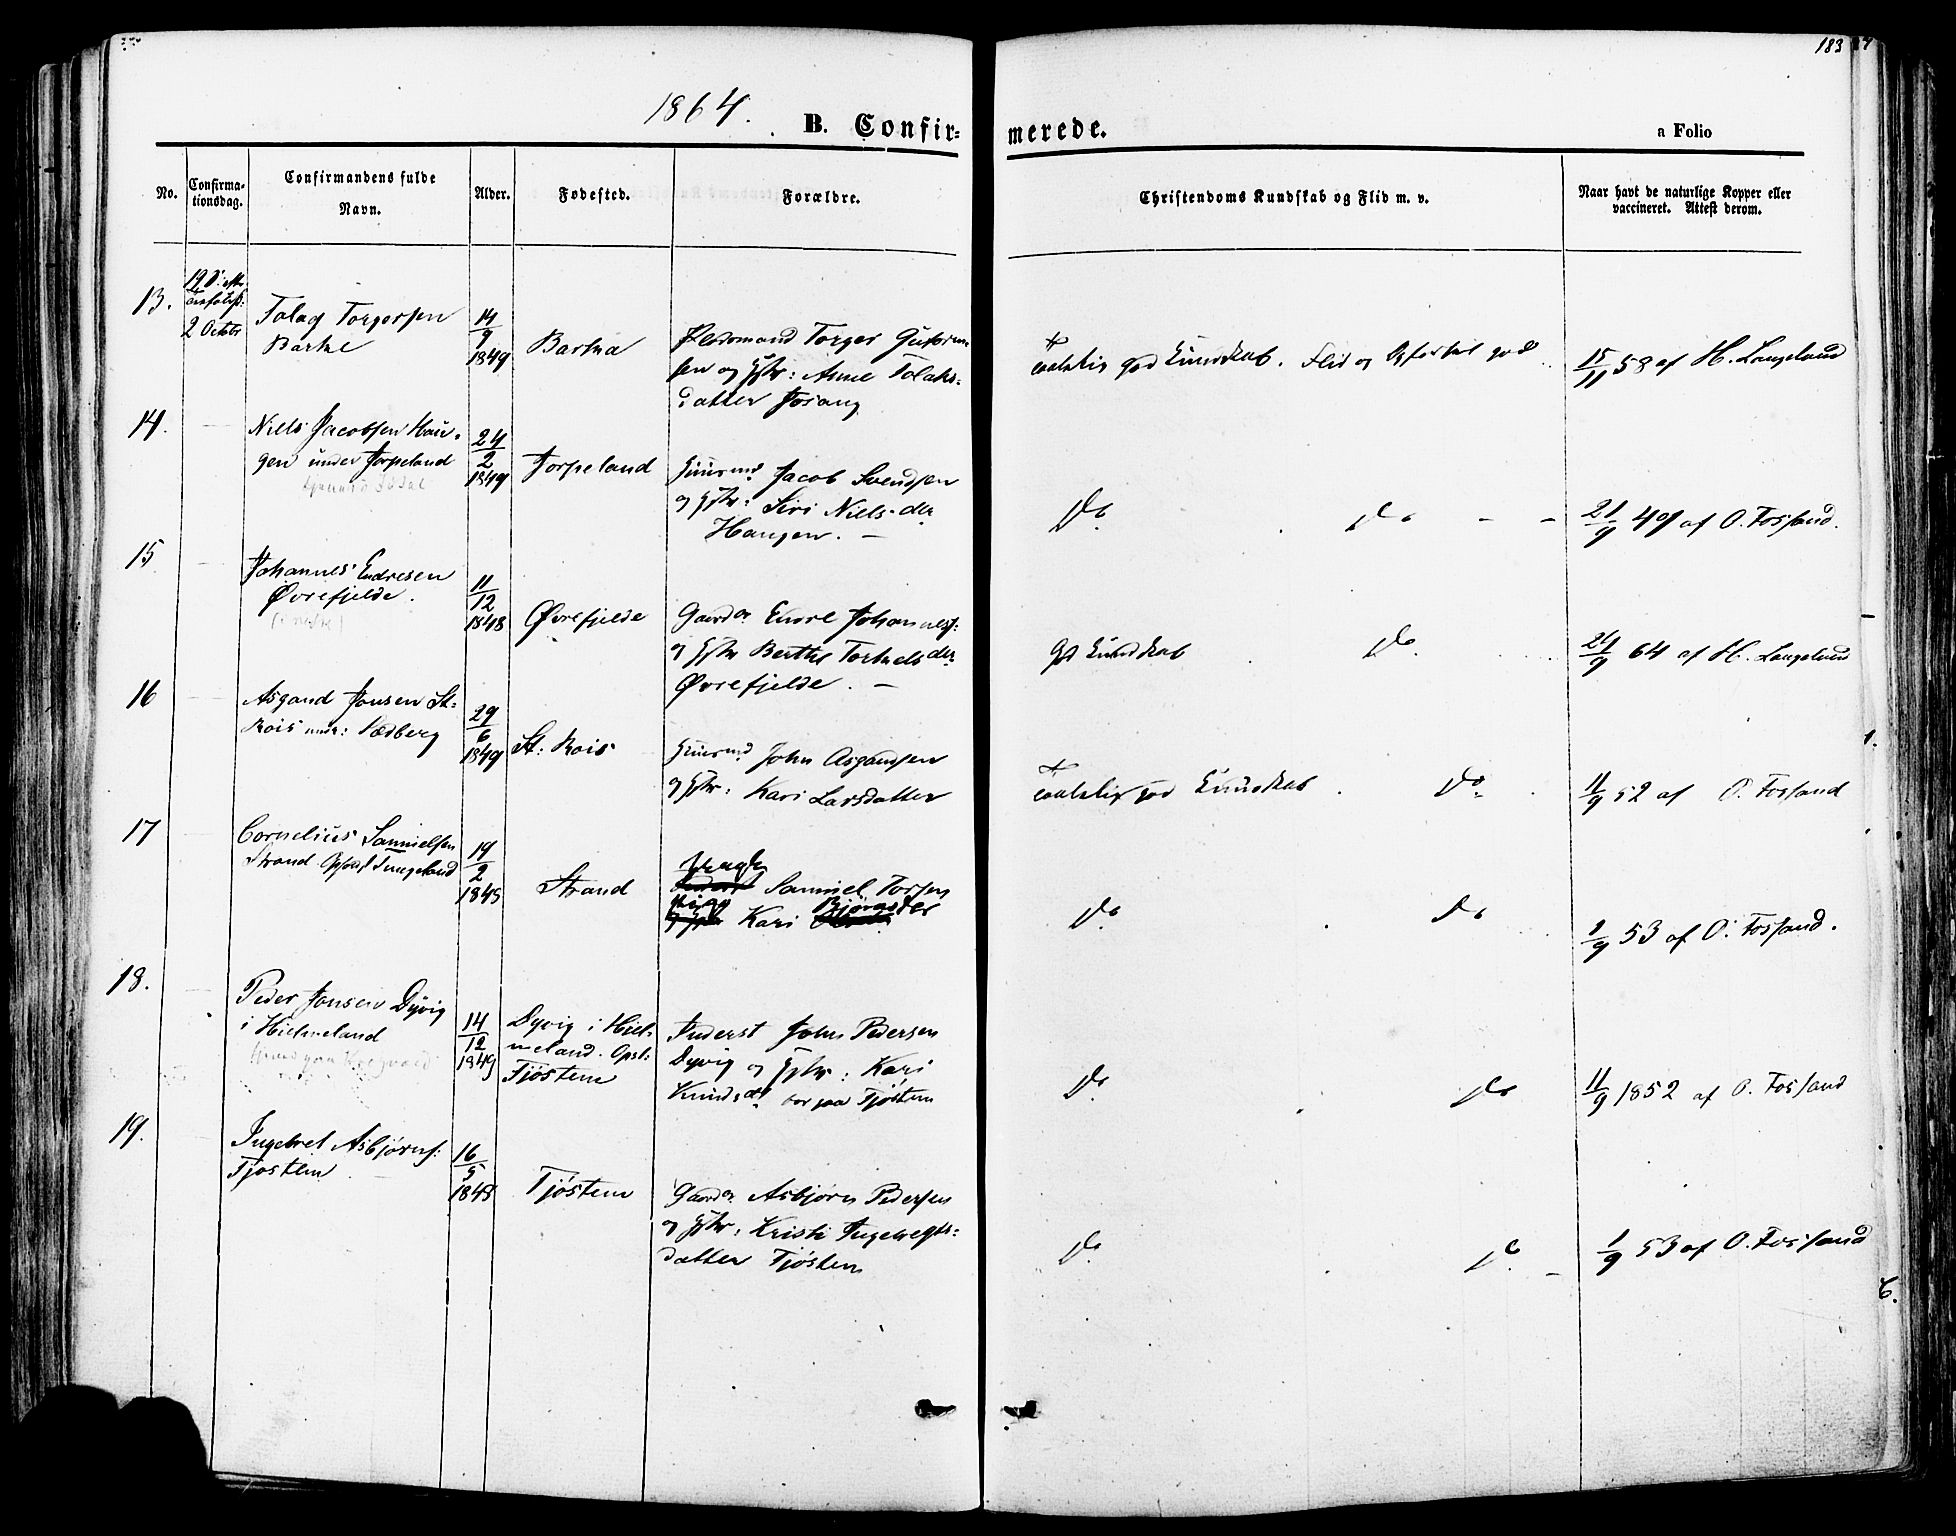 183
1864.
B. Confir-
merede.
a Folio
No.
Confirma-
tionsdag.
Confirmandens fulde
Navn.
Alder.
Fødested.
Forældre.
Christendoms Kundskab og Flid m. v.
Naar havt de naturlige Kopper eller
vaccineret. Attest derom.
13.
2 Octobr
Tolag Torgersen
14/9 1849
Torger
sen og Hstr: Anne Tolaks-
datter Jøsang
god Kundskab. Flid og Opførsel god
15/11 58 af H. Langelund
14.
Niels Jacobsen Hau-
gen under Jørpeland
24/2 1849
Jørpeland
Huusmd Jacob Svendsen
og Hstr: Siri Niels-da
Haugen. -
Do
Do - -
21/9 49 af O. Fossand.
15
Johannes Endresen
Øvrefjelde.
11/12 1848
Øvrefjelde
Gaardm. Endre Johannesf:
og Hstr Berthe Torkelsda
Øvrefjelde. -
gd Kundskab
Do.
24/9 64 af H. Langelund
16
Asgaud Jonsen St:
Kois under: Vadberg
29/6 1849
St: Kois
Huusmd John Asgaudsen
og Hstr: Kari Larsdatter
god Kundskab
Do
11/9 52 af O. Fossand
17
Cornelius Samuelsen
Strand. Opfost Tungeland
19/2
Strand
Samuel Torsen
Kari
Do
Do
1/9 53 af O. Fossand.
18.
Peder Jonsen Dyvig
i Hielmeland
14/12 1849
Dyvig i Hiel-
meland. Opst:
Tjøstem
Inderst John Pedersen
Dyvig og Hstr: Kari
Knudsdt bor paa Tjøstem
Do
Do
11/9 1852 af O. Fossand
19.
Ingebret Asbjørnf:
Tjøstem
16/5 1848
Tjøstem
Gaardm. Asbjørn Pedersen
og Hstr: Kristi Ingebregts-
datter Tjøstem
Do
Do -
1/9 53 af O. Fossand